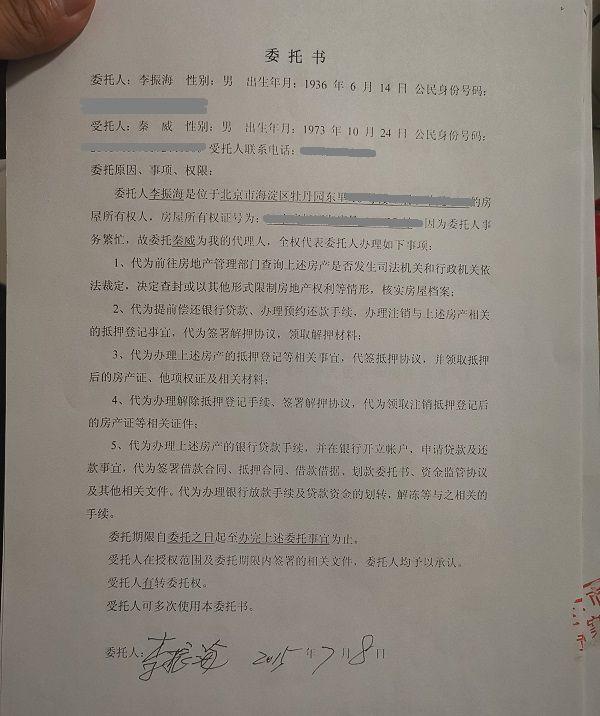 委托书
委托人：李振海 性别：男 出生年月：1936 年 6 月 14 日 公民身份号码：
受托人：秦 威 性别：男 出生年月：1973 年 10 月 24 日 公民身份号码：
受托人联系电话：
委托原因、事项、权限：
委托人李振海是位于北京市海淀区牡丹园东里 的房
屋所有权人，房屋所有权证号为： 因为委托人事
务繁忙，故委托秦威为我的代理人，全权代表委托人办理如下事项：
1、代为前往房地产管理部门查询上述房产是否发生司法机关和行政机关依
法裁定，决定查封或以其他形式限制房地产权利等情形，核实房屋档案；
2、代为提前偿还银行贷款、办理预约还款手续，办理注销与上述房产相关
的抵押登记事宜，代为签署解押协议，领取解押材料；
3、代为办理上述房产的抵押登记等相关事宜，代签抵押协议，并领取抵押
后的房产证、他项权证及相关材料；
4、代为办理解除抵押登记手续、签署解押协议，代为领取注销抵押登记后
的房产证等相关证件；
5、代为办理上述房产的银行贷款手续，并在银行开立帐户、申请贷款及还
款事宜，代为签署借款合同、抵押合同、借款借据、划款委托书、资金监管协议
及其他相关文件。代为办理银行放款手续及贷款资金的划转，解冻等与之相关的
手续。
委托期限自委托之日起至办完上述委托事宜为止。
受托人在授权范围及委托期限内签署的相关文件，委托人均予以承认。
受托人有转委托权。
受托人可多次使用本委托书。
委托人：李振海 2015 年 7 月 8 日